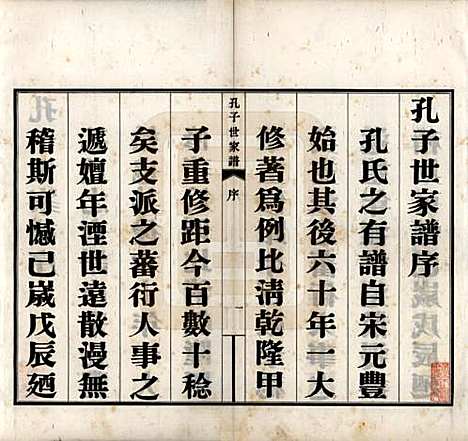 孔子世家譜序
孔氏之有譜自宋元豐
始也其後六十年一大
修著爲例比淸乾隆甲
孔子世家譜 序 一
子重修距今百數十稔
矣支派之蕃衍人事之
遞嬗年湮世遠散漫無
稽斯可憾已歲戊辰廼